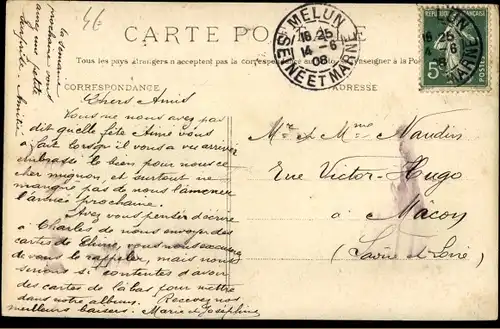 46
CARTE POSTALE
Tous les pays étrangers n'acceptent pas la correspondance
CORRESPONDANCE
ADRESSE
MELUN
16 25
14 - 6
08
SEINE ET MARNE
5
la semaine
prochaine vous
aurez une petite
surprise. Amitiés
Chers Amis
Vous ne nous avez pas
dit quelle fête Aimé vous
a fait lorsqu'il vous a vu arriver
embrassez le bien pour nous ce
cher mignon, et surtout ne
manqué pas de nous l'amener
l'année prochaine.
Avez vous penser décrire
à Charles de nous envoyer des
cartes de Chine, vous nous excuserez
de vous le rappeler, mais nous
serions si contentes d'avoir
des cartes de là bas pour mettre
dans notre album. Recevez nos
meilleurs baisers. Marie et Joséphine
Mr et Mme Naudin
Rue Victor-Hugo
à Mâcon
(Saône et Loire)